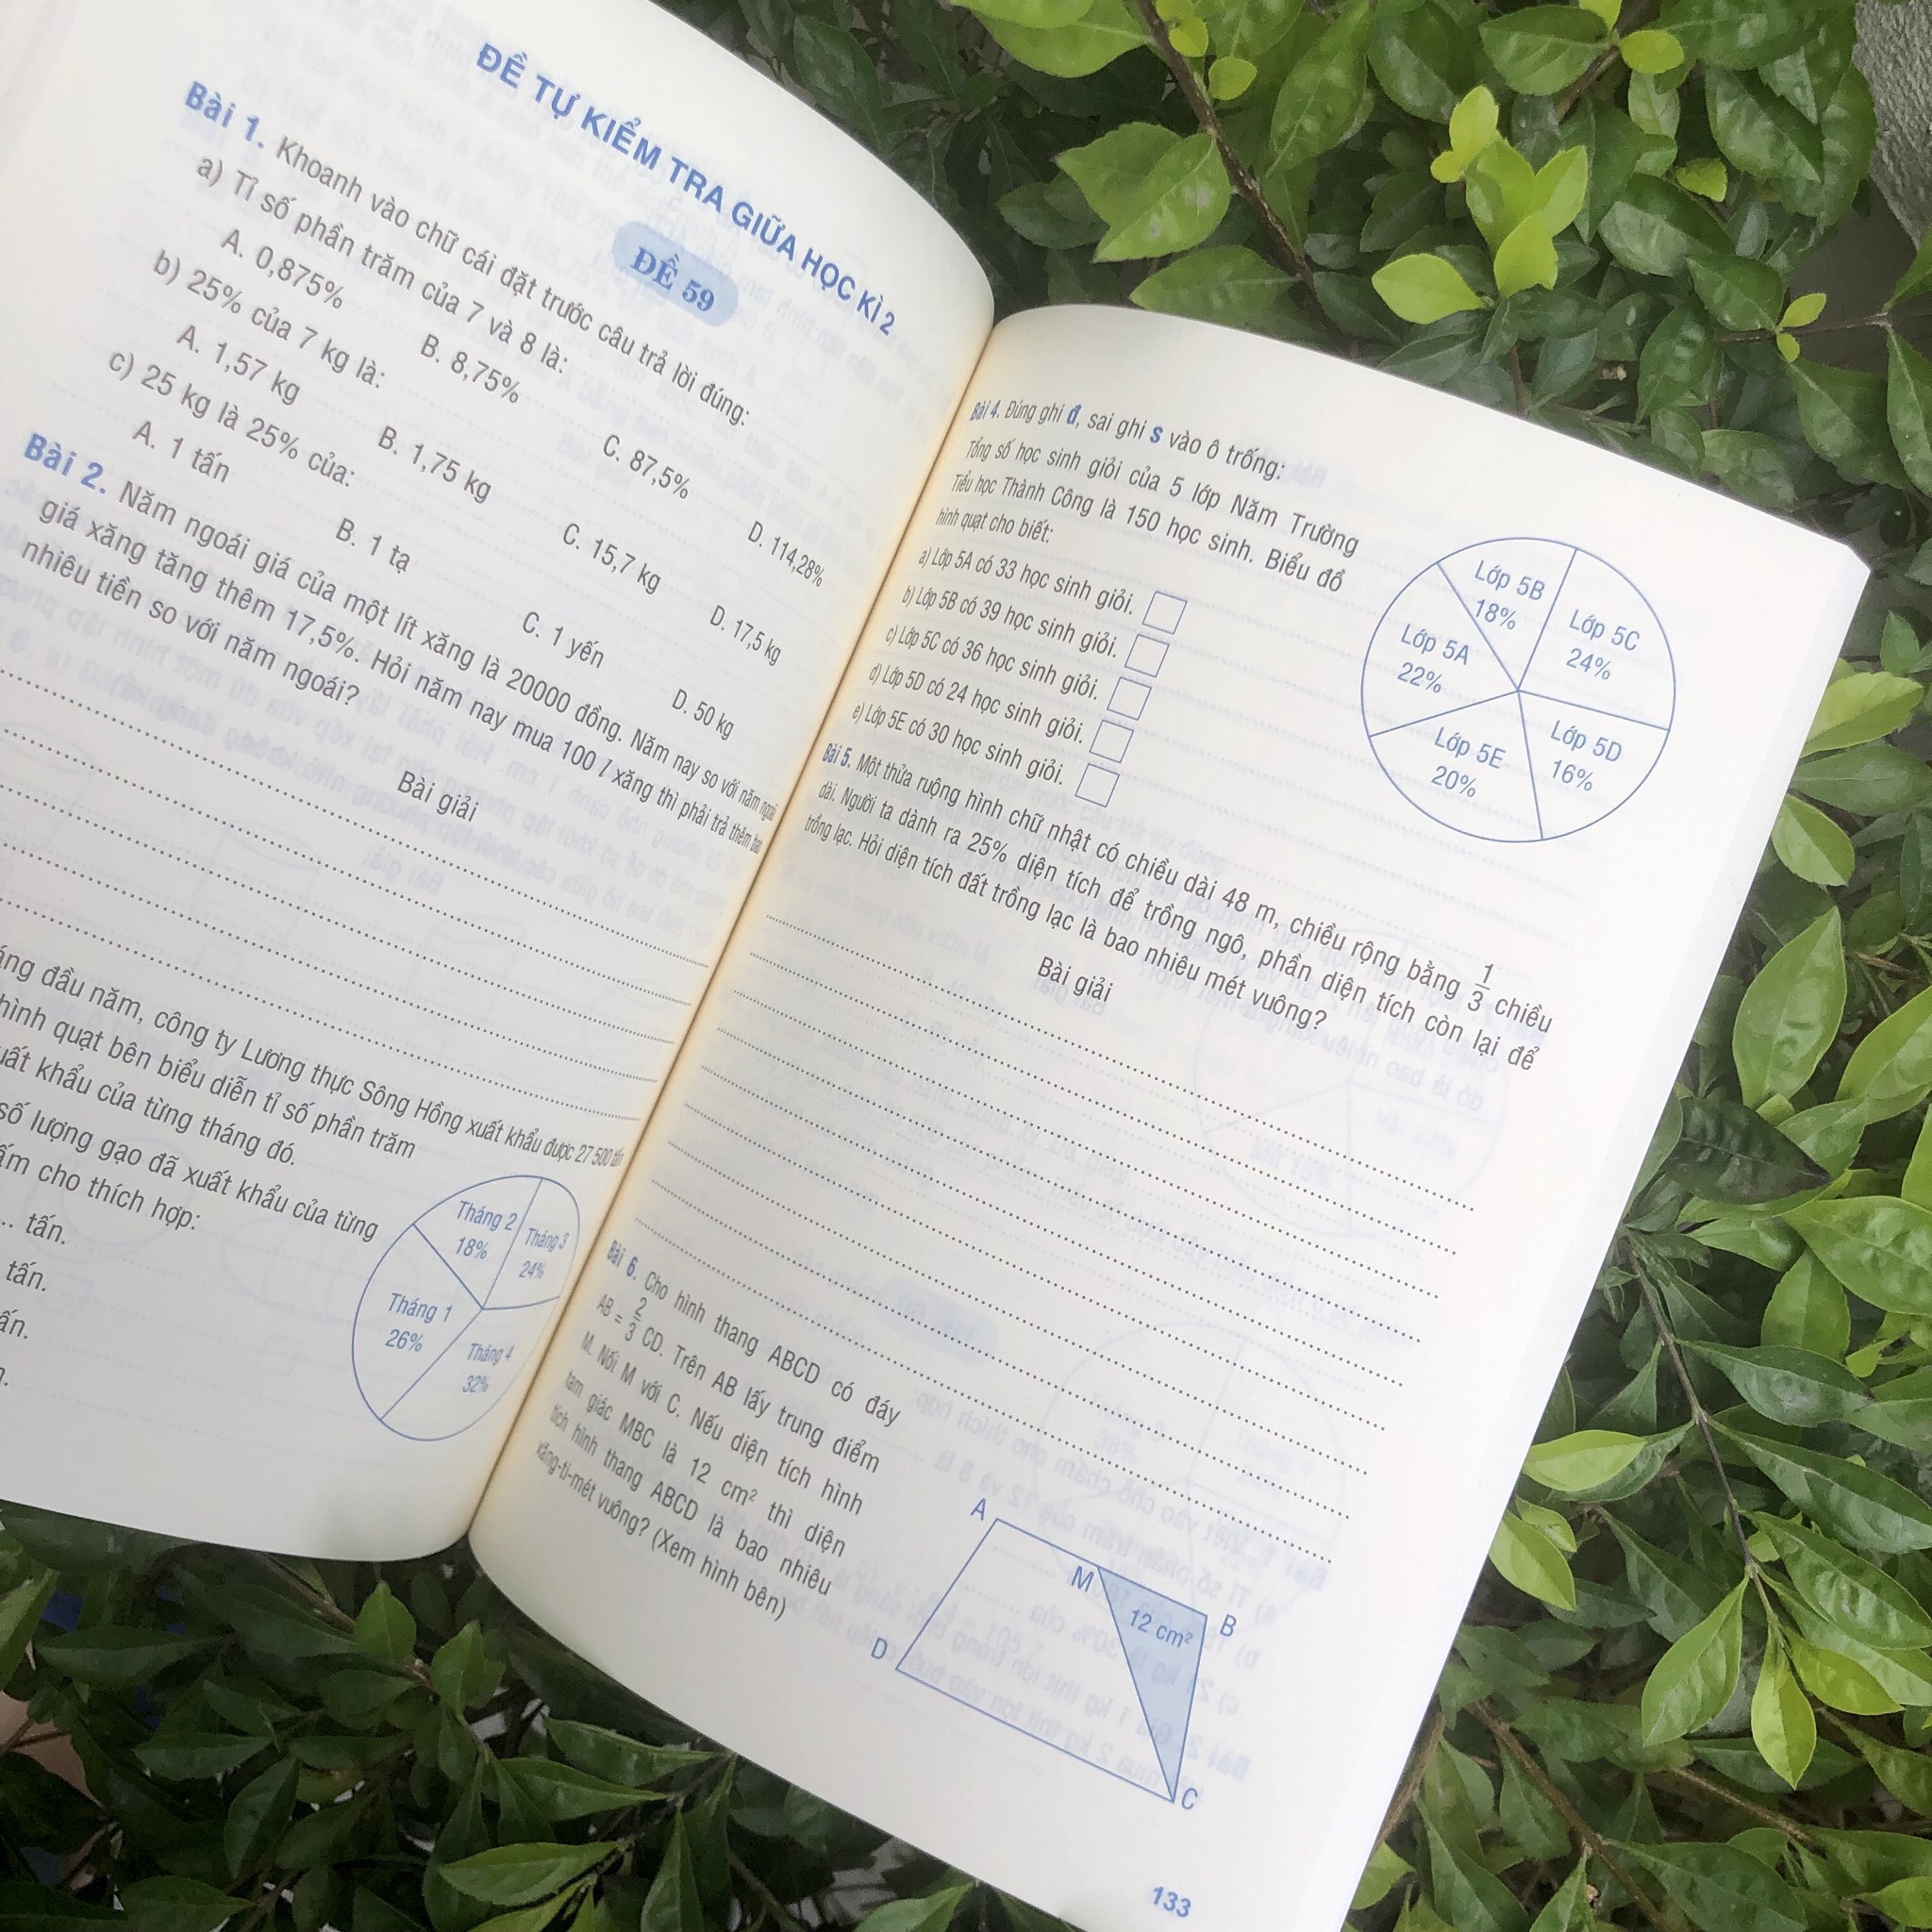 ĐỀ TỰ KIỂM TRA GIỮA HỌC KÌ 2
ĐỀ 59
Bài 1. Khoanh vào chữ cái đặt trước câu trả lời đúng:
a) Tỉ số phần trăm của 7 và 8 là:
A. 0,875% B. 8,75% C. 87,5% D. 114,28%
b) 25% của 7 kg là:
A. 1,57 kg B. 1,75 kg C. 15,7 kg D. 17,5 kg
c) 25 kg là 25% của:
A. 1 tấn B. 1 tạ C. 1 yến D. 50 kg
Bài 2. Năm ngoái giá của một lít xăng là 20000 đồng. Năm nay so với năm ngoái
giá xăng tăng thêm 17,5%. Hỏi năm nay mua 100 l xăng thì phải trả thêm bao
nhiêu tiền so với năm ngoái?
Bài giải
đầu năm, công ty Lương thực Sông Hồng xuất khẩu được 27 500 tấn
hình quạt bên biểu diễn tỉ số phần trăm
khẩu của từng tháng đó.
số lượng gạo đã xuất khẩu của từng
cho thích hợp:
... tấn.
tấn.
Tháng 2
18%
Tháng 3
24%
Tháng 1
26%
Tháng 4
32%
Bài 4. Đúng ghi đ, sai ghi s vào ô trống:
Tổng số học sinh giỏi của 5 lớp Năm Trường
Tiểu học Thành Công là 150 học sinh. Biểu đồ
hình quạt cho biết:
a) Lớp 5A có 33 học sinh giỏi.
b) Lớp 5B có 39 học sinh giỏi.
c) Lớp 5C có 36 học sinh giỏi.
d) Lớp 5D có 24 học sinh giỏi.
e) Lớp 5E có 30 học sinh giỏi.
Lớp 5B
18%
Lớp 5C
24%
Lớp 5A
22%
Lớp 5D
16%
Lớp 5E
20%
Bài 5. Một thửa ruộng hình chữ nhật có chiều dài 48 m, chiều rộng bằng 1/3 chiều
dài. Người ta dành ra 25% diện tích để trồng ngô, phần diện tích còn lại để
trồng lạc. Hỏi diện tích đất trồng lạc là bao nhiêu mét vuông?
Bài giải
Bài 6. Cho hình thang ABCD có đáy
AB = 2/3 CD. Trên AB lấy trung điểm
M. Nối M với C. Nếu diện tích hình
tam giác MBC là 12 cm² thì diện
tích hình thang ABCD là bao nhiêu
xăng-ti-mét vuông? (Xem hình bên)
A
M
B
12 cm²
D
C
133